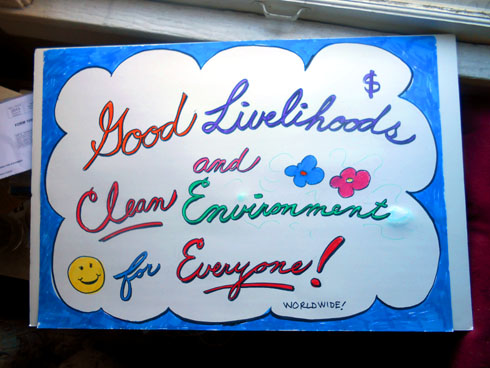 $
Good Livelihoods
and
Clean Environment
for Everyone!
WORLDWIDE!